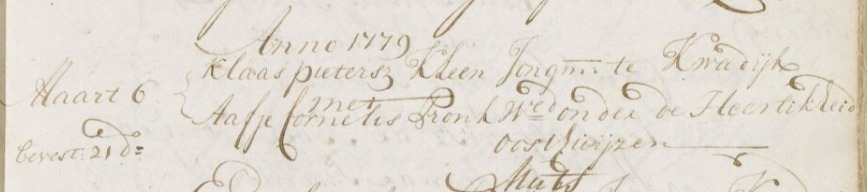 Anno 1779
Maart 6 Klaas pietersz Kleen Jongm: te Kwadijk
met
Aafje Cornelis Pronk Wed: onder de Heerlikheid
bevest: 21 d= oosthuijzen